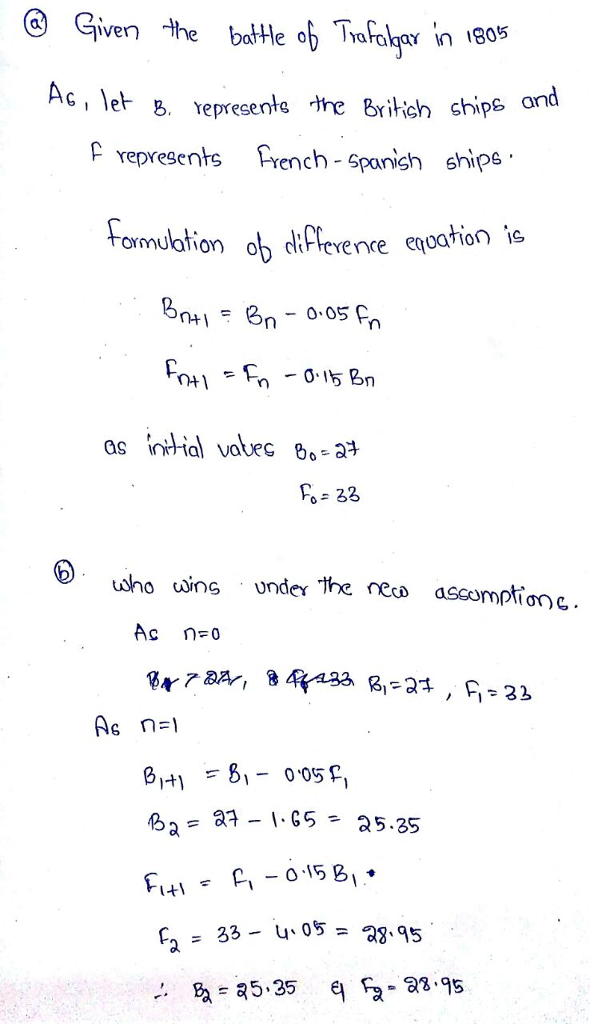 ⓐ Given the battle of Trafalgar in 1805
As, let B. represents the British ships and
F represents French-Spanish ships.
formulation of difference equation is
Bn+1 = Bn - 0.05 Fn
Fn+1 = Fn - 0.15 Bn
as initial values B0 = 27
F0 = 33
ⓑ. who wins under the new assumptions.
As n=0
B1=27, F1=33
As n=1
B1+1 = B1 - 0.05 F1
B2 = 27 - 1.65 = 25.35
F1+1 = F1 - 0.15 B1
F2 = 33 - 4.05 = 28.95
∴ B2 = 25.35 & F2 = 28.95